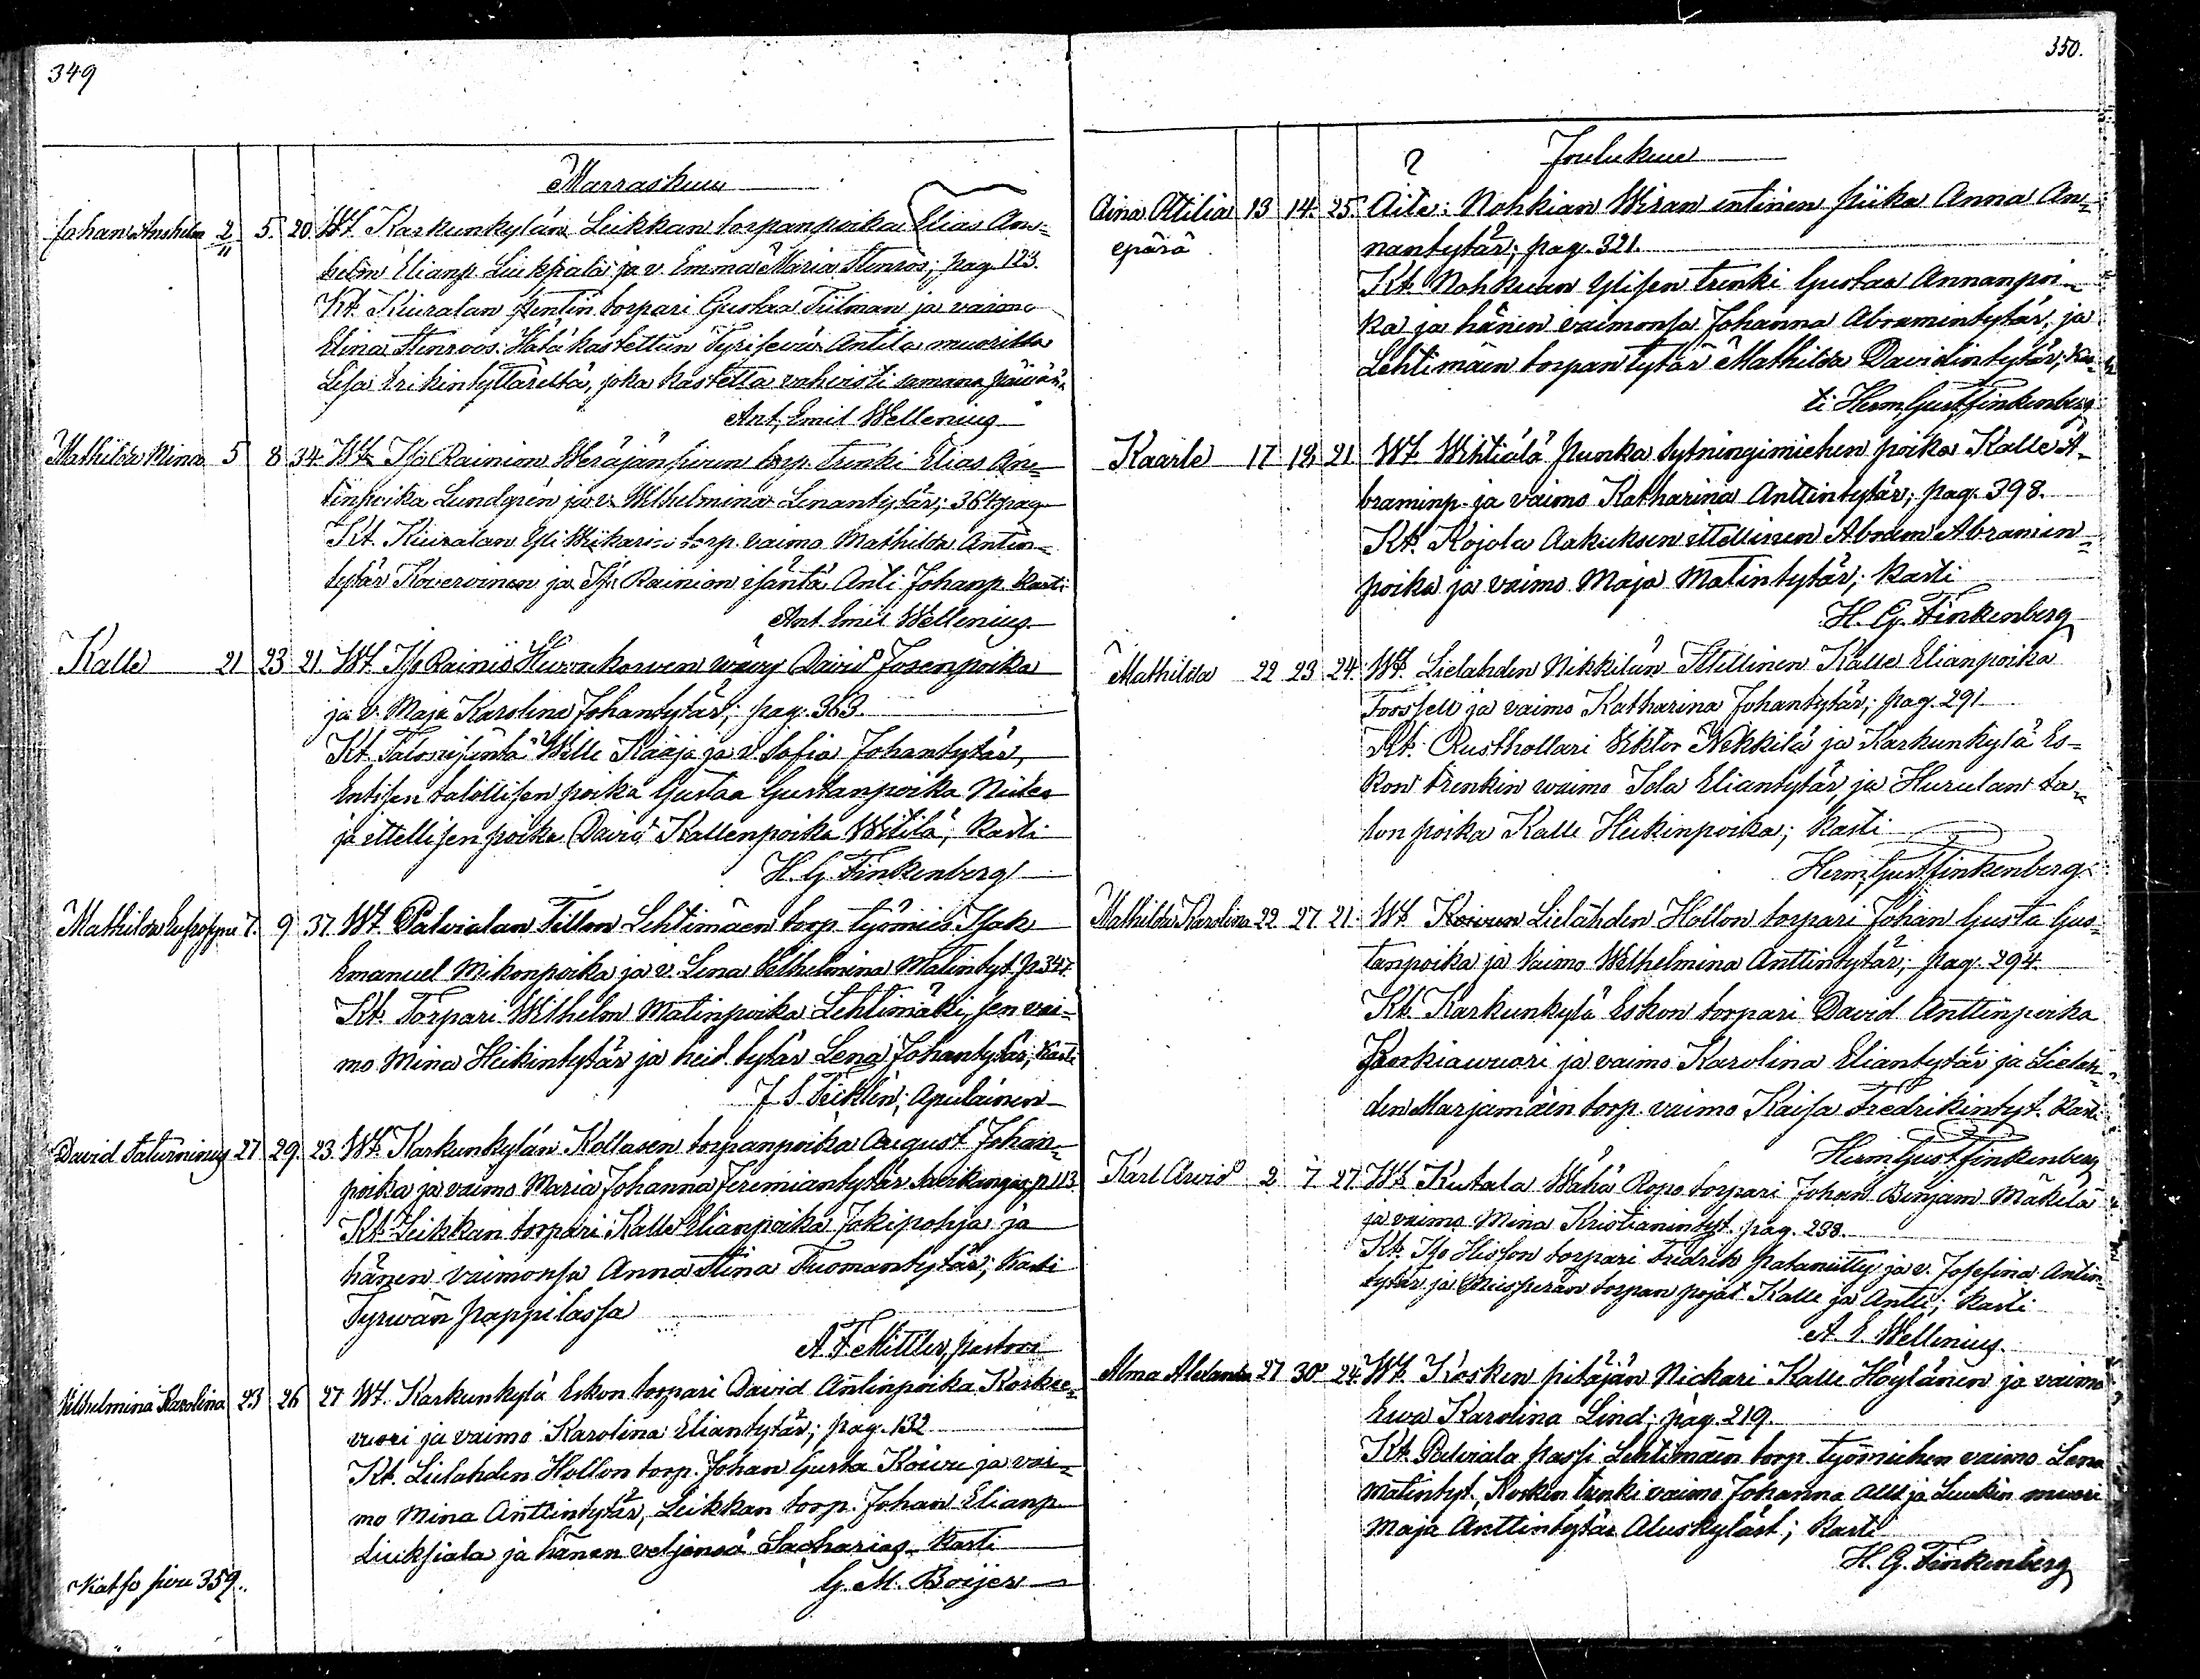 349
Marraskuu
Johan Anshelm 2/11 5. 20. Wt. Karkunkylän Leikkan torpanpoika Elias Ans-
helm Elianp. Liuksiala ja v. Emma Maria Stenros; pag. 123.
Kt. Kiuralan Pentin torpari Gustaa Tiilman ja vaimo
Elina Stenroos. Hätäkastettun Antila muorilta
Lisa Erikintyttäreltä, joka kastetta vahvisti samana päivänä
Ant. Emil Wellenius
Mathilda Mina 5 8 34. Wt. Iso Rainion torp. Trenki Elias An-
tinpoika Lundgren ja v. Wilhelmina Lenantytär; 364 pag
Kt. Kiuralan torp. vaimo Mathilda Antin-
tytär Koivervinen ja Iso Rainion isäntä Anti Johanp. kasti
Ant. Emil Wellenius
Kalle 21 23 21. Wt. Iso Rainio wävy David Josenpoika
ja v. Maja Karolina Johantytär; pag. 363.
Kt. Talonisäntä Wille Kääjä ja v. Sofia Johantytär,
Entisen talollisen poika Gustaa Gustanpoika
ja ittellisen poika David Kallenpoika Wiitilä; kasti
H. G. Finkenberg
Mathilda 7. 9 37. Wt. Palvialan Tillon Lehtimäen torp. työmies Isak
Emanuel Mikonpoika ja v. Lena Wilhelmina Matintyt. p. 347.
Kt. Torpari Wilhelm Matinpoika Lehtimäki, sen vai-
mo Mina Heikintytär ja heid. tytär Lena Johantytär; kasti
J. S. Ticklén; Apulainen
David Saturninus 27 29. 23. Wt. Karkunkylän Kollasen torpanpoika August Johan-
poika ja vaimo Maria Johanna Jeremiantytär p 113
Kt. Leikkan torpari Kalle Elianpoika Jokipohja ja
hänen vaimonsa Anna Stina Tuomantytär; kasti
Tyrwän pappilassa
A. F. Mittler, pastori
Wilhelmina Karolina 23 26 27 Wt. Karkunkylä Eskon torpari David Antinpoika Korkee-
vuori ja vaimo Karolina Eliantytär; pag. 132
Kt. Lielahden Hollon torp. Johan Gusta Koivu ja vai-
mo Mina Anttintytär, Leikkan torp. Johan Elianp.
Liuksiala ja hänen veljensä Sacharias. kasti
G. M. Boijer
Katso sivu 359.
350.
? Joulukuu
Aina Otilia 13 14. 25. Äite: Nohkian Wiran entinen piika Anna An-
epärä nantytär; pag. 321.
Kt. Nohkuan Ylisen trenki Gustaa Annanpoi-
ka ja hänen vaimonsa Johanna Abramintytär, ja
Lehtimäen torpantytär Mathilda Davidintytär; kas-
ti Herm. Gust. Finkenberg
Kaarle 17 18 21 Wt. Wihtiälä Punka lytningimiehen poika Kalle A-
braminp. ja vaimo Katharina Anttintytär; pag. 398.
Kt. Kojola Aakuksen ittellinen Abram Abramin-
poika ja vaimo Maja Matintytär; kasti
H. G. Finkenberg
Mathilda 22 23 24. Wt. Lielahden Nikkilän Ittellinen Kalle Elianpoika
Foossell ja vaimo Katharina Johantytär; pag. 291.
Kt. Rusthollari Viktor Nikkilä ja Karkunkylä Es-
kon trenkin waimo Iola Eliantytär, ja Hurulan ta-
lon poika Kalle Heikinpoika; kasti
Herm. Gust. Finkenberg
Mathilda Karolina 22 27 21. Wt. Koivun Lielahden Hollon torpari Johan Gusta Gus-
tanpoika ja Vaimo Wilhelmina Anttintytär; pag. 294.
Kt. Karkunkylä Eskon torpari David Anttinpoika
Korkiawuori ja vaimo Karolina Eliantytär ja Lielah-
den Marjamäen torp. vaimo Kaisa Fredrikintyt. kasti
Herm. Gust. Finkenberg
Karl Arvid 2 7 27 Wt. Kutala Wähä Ropo torpari Johan Binjam Mäkilä
ja vaimo Mina Kristianintyt. pag. 238.
Kt. Iso Hisson torpari Fredrik Patanitty ja v. Josefina Antin-
tytär ja torpan pojat Kalle ja Antti; kasti
A. E. Wellenius
Alma Alexandra 27 30 24. Wt. Kosken pitäjän Nickari Kalle Höylänen ja vaimo
Ewa Karolina Lind; pag. 219.
Kt. Palviala passi Lehtimäen torp. työmiehen vaimo Lena
Matintyt., Kosken trenki vaimo Johanna ja muori
Maja Anttintytär Aluskyläst; kasti
H. G. Finkenberg